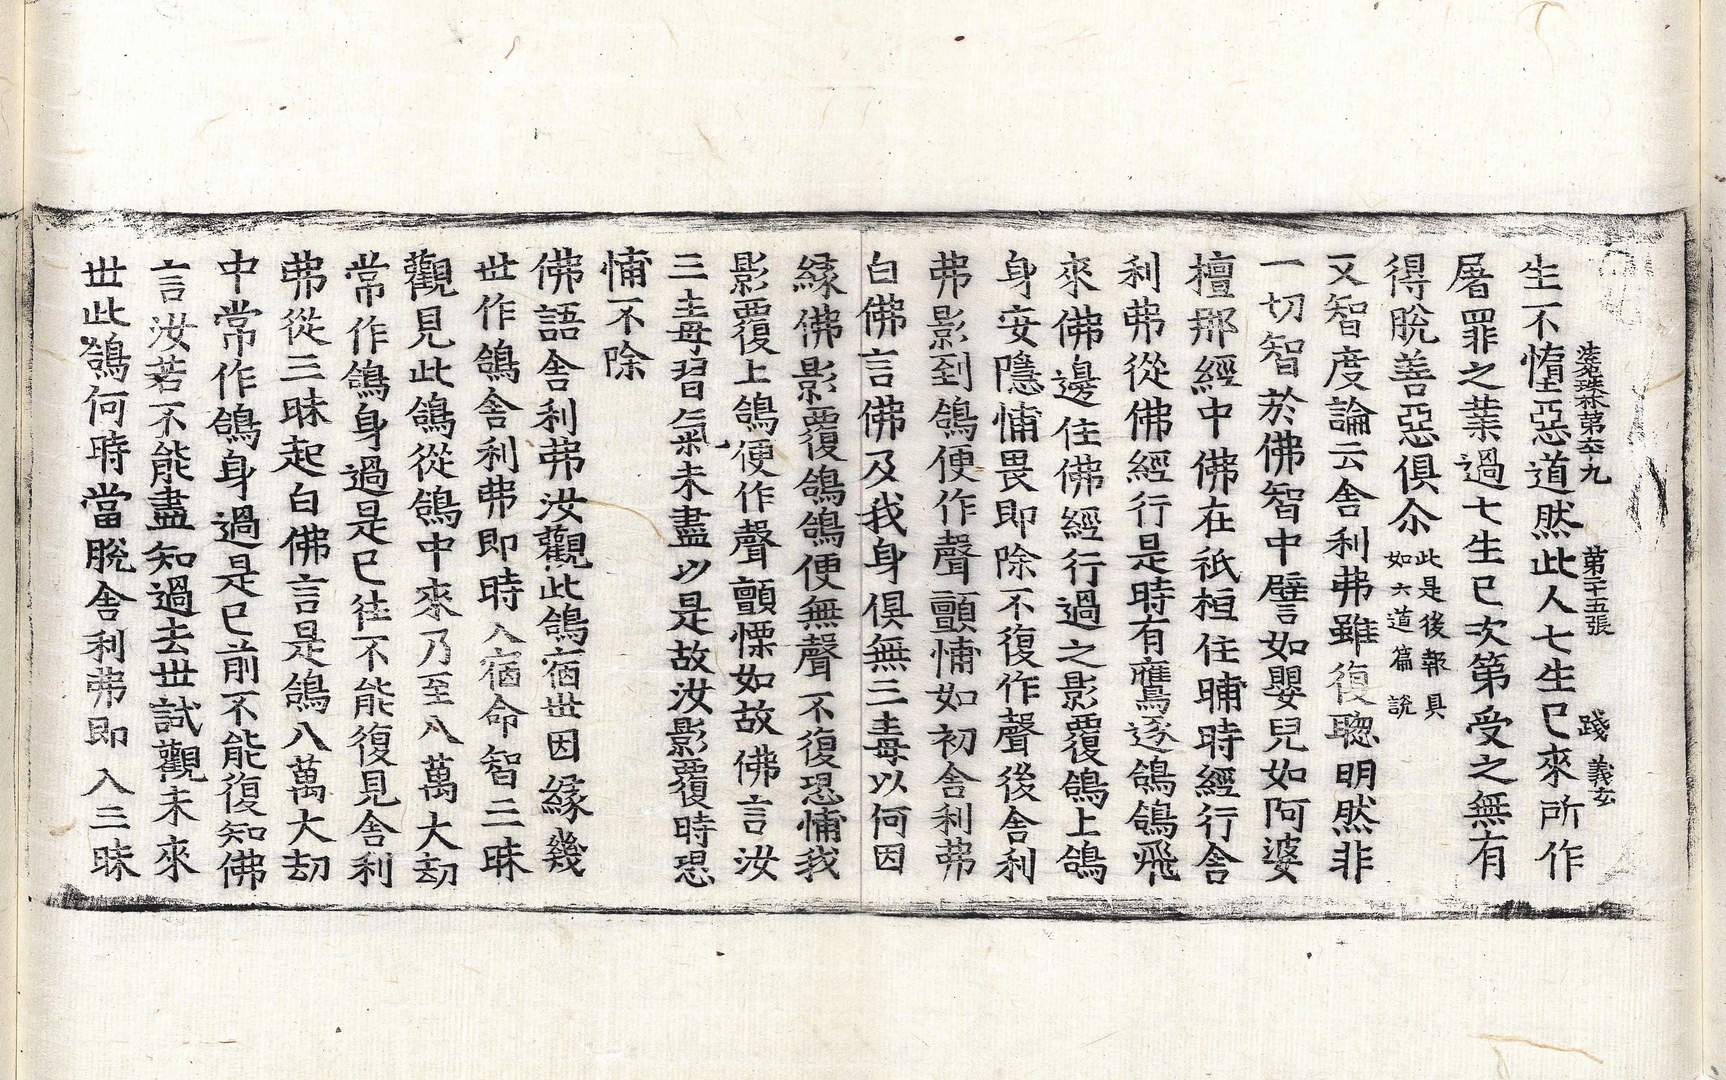 法苑珠林第六十九 第二十五張 踐 義玄
生不墮惡道然此人七生已來所作
屠罪之業過七生已次第受之無有
得脫善惡俱尒此是後報具如六道篇說
又智度論云舍利弗雖復聰明然非
一切智於佛智中譬如嬰兒如阿婆
檀那經中佛在祇桓住晡時經行舍
利弗從佛經行是時有鷹逐鴿鴿飛
來佛邊住佛經行過之影覆鴿上鴿
身安隱怖畏即除不復作聲後舍利
弗影到鴿便作聲顫怖如初舍利弗
白佛言佛及我身俱無三毒以何因
緣佛影覆鴿鴿便無聲不復恐怖我
影覆上鴿便作聲顫慄如故佛言汝
三毒習氣未盡以是故汝影覆時恐
怖不除
佛語舍利弗汝觀此鴿宿世因緣幾
世作鴿舍利弗即時入宿命智三昧
觀見此鴿從鴿中來乃至八萬大劫
常作鴿身過是已往不能復見舍利
弗從三昧起白佛言是鴿八萬大劫
中常作鴿身過是已前不能復知佛
言汝若不能盡知過去世試觀未來
世此鴿何時當脫舍利弗即入三昧